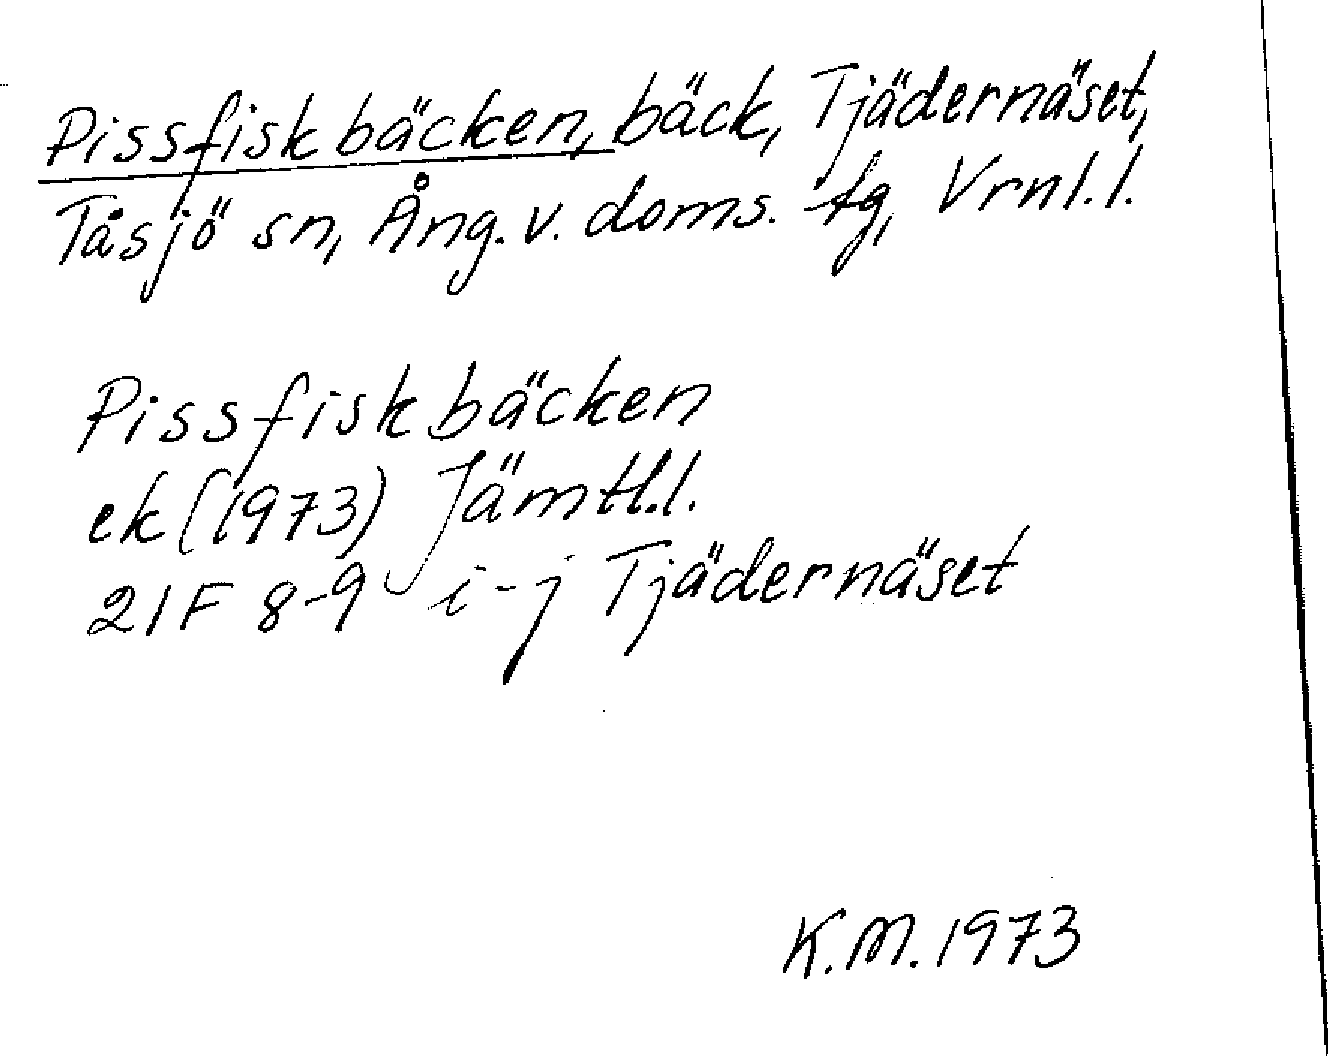 Pissfiskbäcken, bäck, Tjädernäset,
Tåsjö sn, Ång. v. doms. tg, Vrnl. l.
Pissfiskbäcken
ek (1973) Jämtl. l.
21F 8-9 i-j Tjädernäset
K.M. 1973